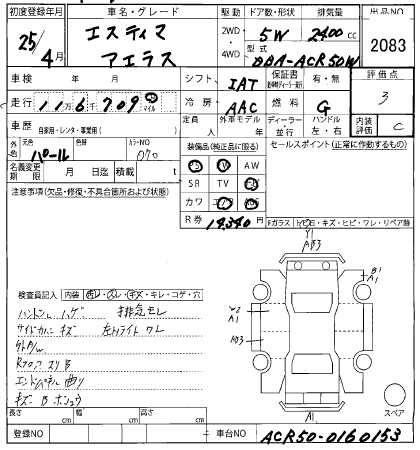 初度登録年月 車名・グレード 駆動 ドア数・形状 排気量 出品NO
25/4月 エスティマ アエラス 2WD・4WD 5W 2400 CC 2083
型式 DBA-ACR50W
車検 年 月 シフト IAT 保証書 有・無 評価点 3
走行 11万6千709 マイル 冷房 AAC 燃料 G
車歴 自家用・レンタ・事業用( ) 定員 人 外車モデル 年 ディーラー 並行 ハンドル 左・右 内装評価 C
外色 元色 パール 色替 カラーNO 070
装備品(純正品に限る) セールスポイント(正常に作動するもの)
PS TV AW
名義変更期限 月 日迄 積載 t
SR TV
カワ エアB ABS
R券 14,340円
注意事項(欠品・修復・不具合箇所および状態)
Fガラス トビ石・キズ・ヒビ・ワレ・リペア跡
Y1
AB3
B1
A1
W2
A1
AB3
A1
検査員記入 内装 汚レ・スレ・キズ・キレ・コゲ・穴
ハンドル ハゲ 排気モレ
サイドカバー キズ 左Hライト ワレ
外P/W
Rフロア スリ B
エンドパネル 曲り
キズ B ホシュウ
スペア
長さ cm 幅 cm 高さ cm
登録NO 車台NO ACR50-0160153